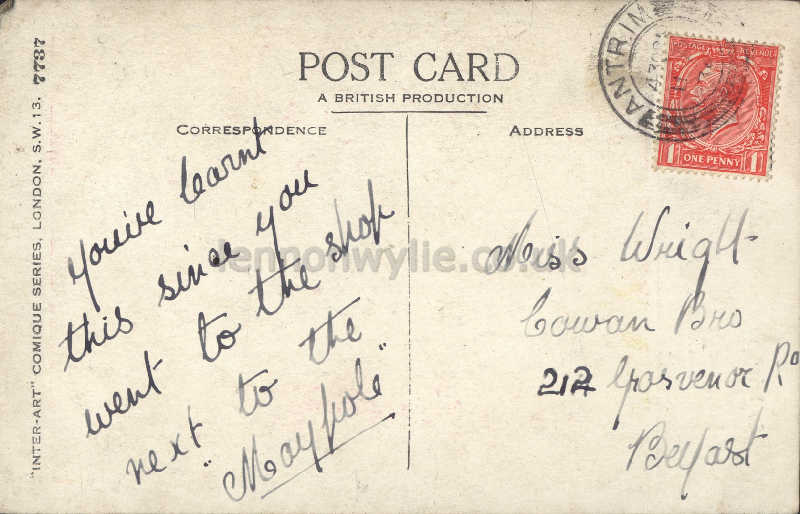 POST CARD
A BRITISH PRODUCTION
CORRESPONDENCE
ADDRESS
"INTER-ART" COMIQUE SERIES, LONDON, S.W.13. 7737
ANTRIM
POSTAGE REVENUE
1 ONE PENNY 1
you've learnt
this since you
went to the shop
next to the
"Maypole"
Miss Wright
Cowan Bro
212 Grosvenor Rd
Belfast
lennonwylie.co.uk